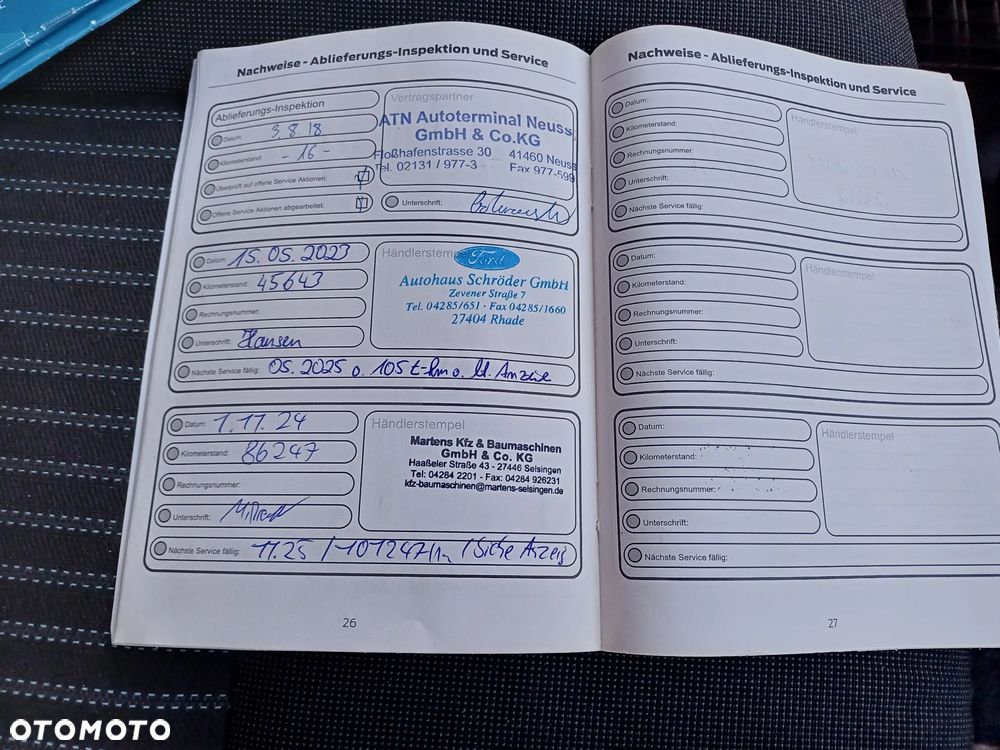 Nachweise - Ablieferungs-Inspektion und Service
Ablieferungs-Inspektion
Datum: 3.8.18
Kilometerstand: - 16 -
Überprüft auf offene Service Aktionen:
Offene Service Aktionen abgearbeitet:
Vertragspartner
ATN Autoterminal Neuss
GmbH & Co.KG
Floßhafenstrasse 30 41460 Neuss
Tel. 02131 / 977-3 Fax 977-599
Unterschrift:
Datum: 15.05.2023
Kilometerstand: 45643
Rechnungsnummer:
Unterschrift: Hansen
Nächste Service fällig: 05.2025 o. 105 t-km o. lt. Anzeige
Händlerstempel
Ford
Autohaus Schröder GmbH
Zevener Straße 7
Tel. 04285/651 · Fax 04285/1660
27404 Rhade
Datum: 1.11.24
Kilometerstand: 86247
Rechnungsnummer:
Unterschrift:
Nächste Service fällig: 11.25 / 101247km / Siehe Anzeig
Händlerstempel
Martens Kfz & Baumaschinen
GmbH & Co. KG
Haaßeler Straße 43 - 27446 Selsingen
Tel: 04284 2201 - Fax: 04284 926231
kfz-baumaschinen@martens-selsingen.de
26
Nachweise - Ablieferungs-Inspektion und Service
Datum:
Kilometerstand:
Rechnungsnummer:
Unterschrift:
Nächste Service fällig:
Händlerstempel
Datum:
Kilometerstand:
Rechnungsnummer:
Unterschrift:
Nächste Service fällig:
Händlerstempel
Datum:
Kilometerstand:
Rechnungsnummer:
Unterschrift:
Nächste Service fällig:
Händlerstempel
27
OTOMOTO